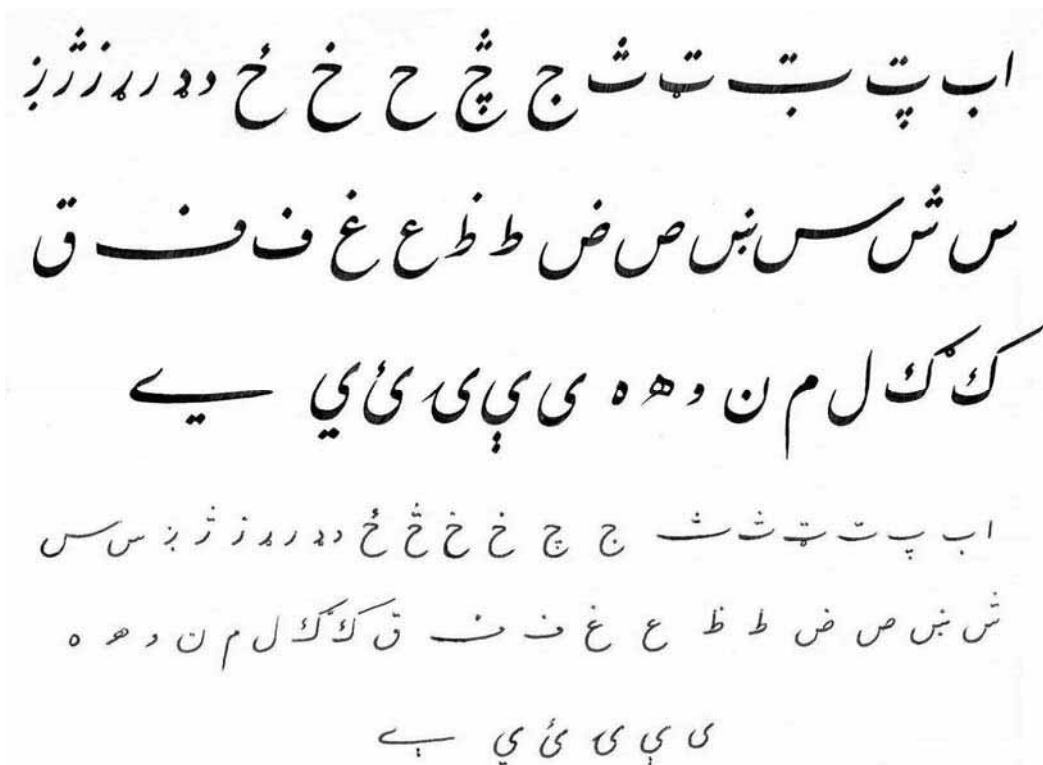 ا ب پ ت ټ ث ج څ ح خ ځ د ډ ر ړ ز ژ ږ
س ش س ښ ص ض ط ظ ع غ ف ف ق
ك ګ ل م ن و ه ه ى ې ۍ ئ ي ے
ا ب پ ت ټ ث ث ج چ خ خ څ ځ د ډ ر ړ ز ژ ږ س س
ش ښ ص ض ط ظ ع غ ف ف ق ك ګ ل م ن و ه ه
ى ې ۍ ئ ي ے